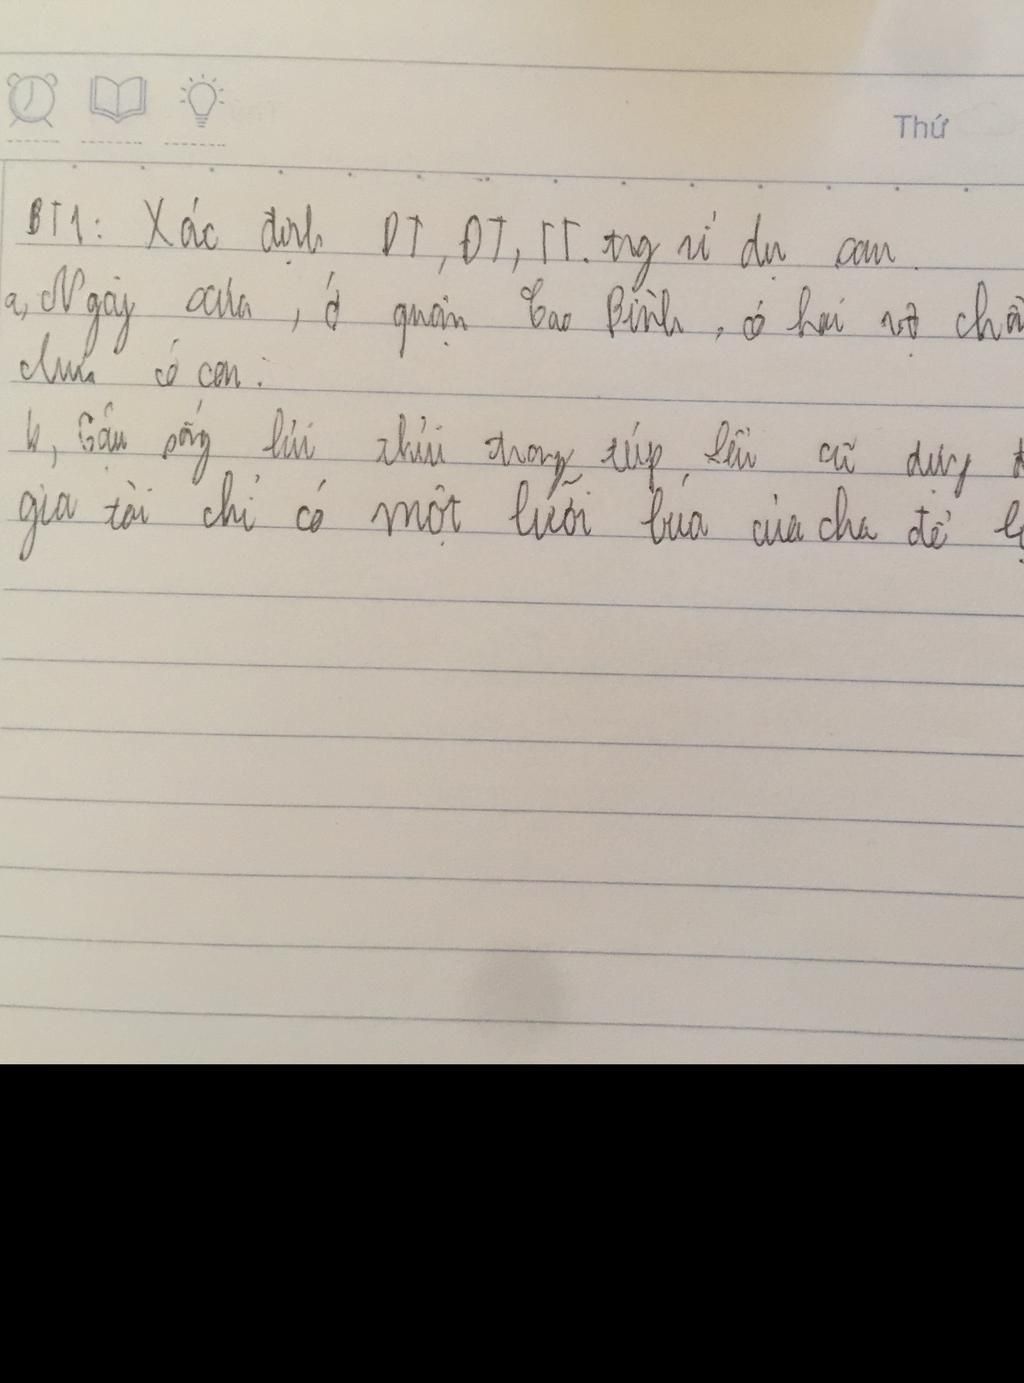 Thứ
BT1: Xác định DT, ĐT, TT. trg ví dụ sau.
a, Ngày xưa, ở quận Cao Bình, có hai vợ
chưa có con.
b, sống lủi thủi trong túp lều cũ dựng
gia tài chỉ có một lưỡi búa của cha để